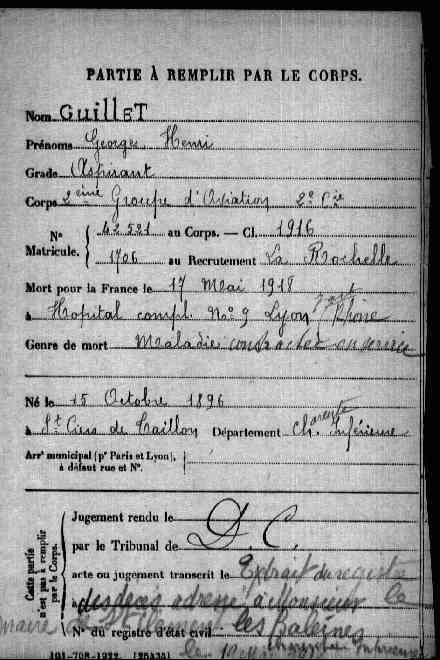 PARTIE À REMPLIR PAR LE CORPS.
Nom GUillET
Prénoms Georges Henri
Grade Aspirant
Corps 2ème Groupe d'Aviation 2e Cie
N° Matricule. 42521 au Corps. — Cl. 1916
1706 au Recrutement La Rochelle
Mort pour la France le 17 Mai 1918
à Hopital compl. N° 9 Lyon Rhône
Genre de mort Maladie contractée en service
Né le 15 Octobre 1896
à St Ciers du Taillon Département Charente Inférieure
Arrt municipal (pr Paris et Lyon), à défaut rue et N°.
Cette partie n'est pas à remplir par le Corps.
Jugement rendu le
par le Tribunal de D C.
acte ou jugement transcrit le Extrait du registre
à des décès adressé à Monsieur le
maire de St Clément les Baleines
N° du registre d'état civil
le